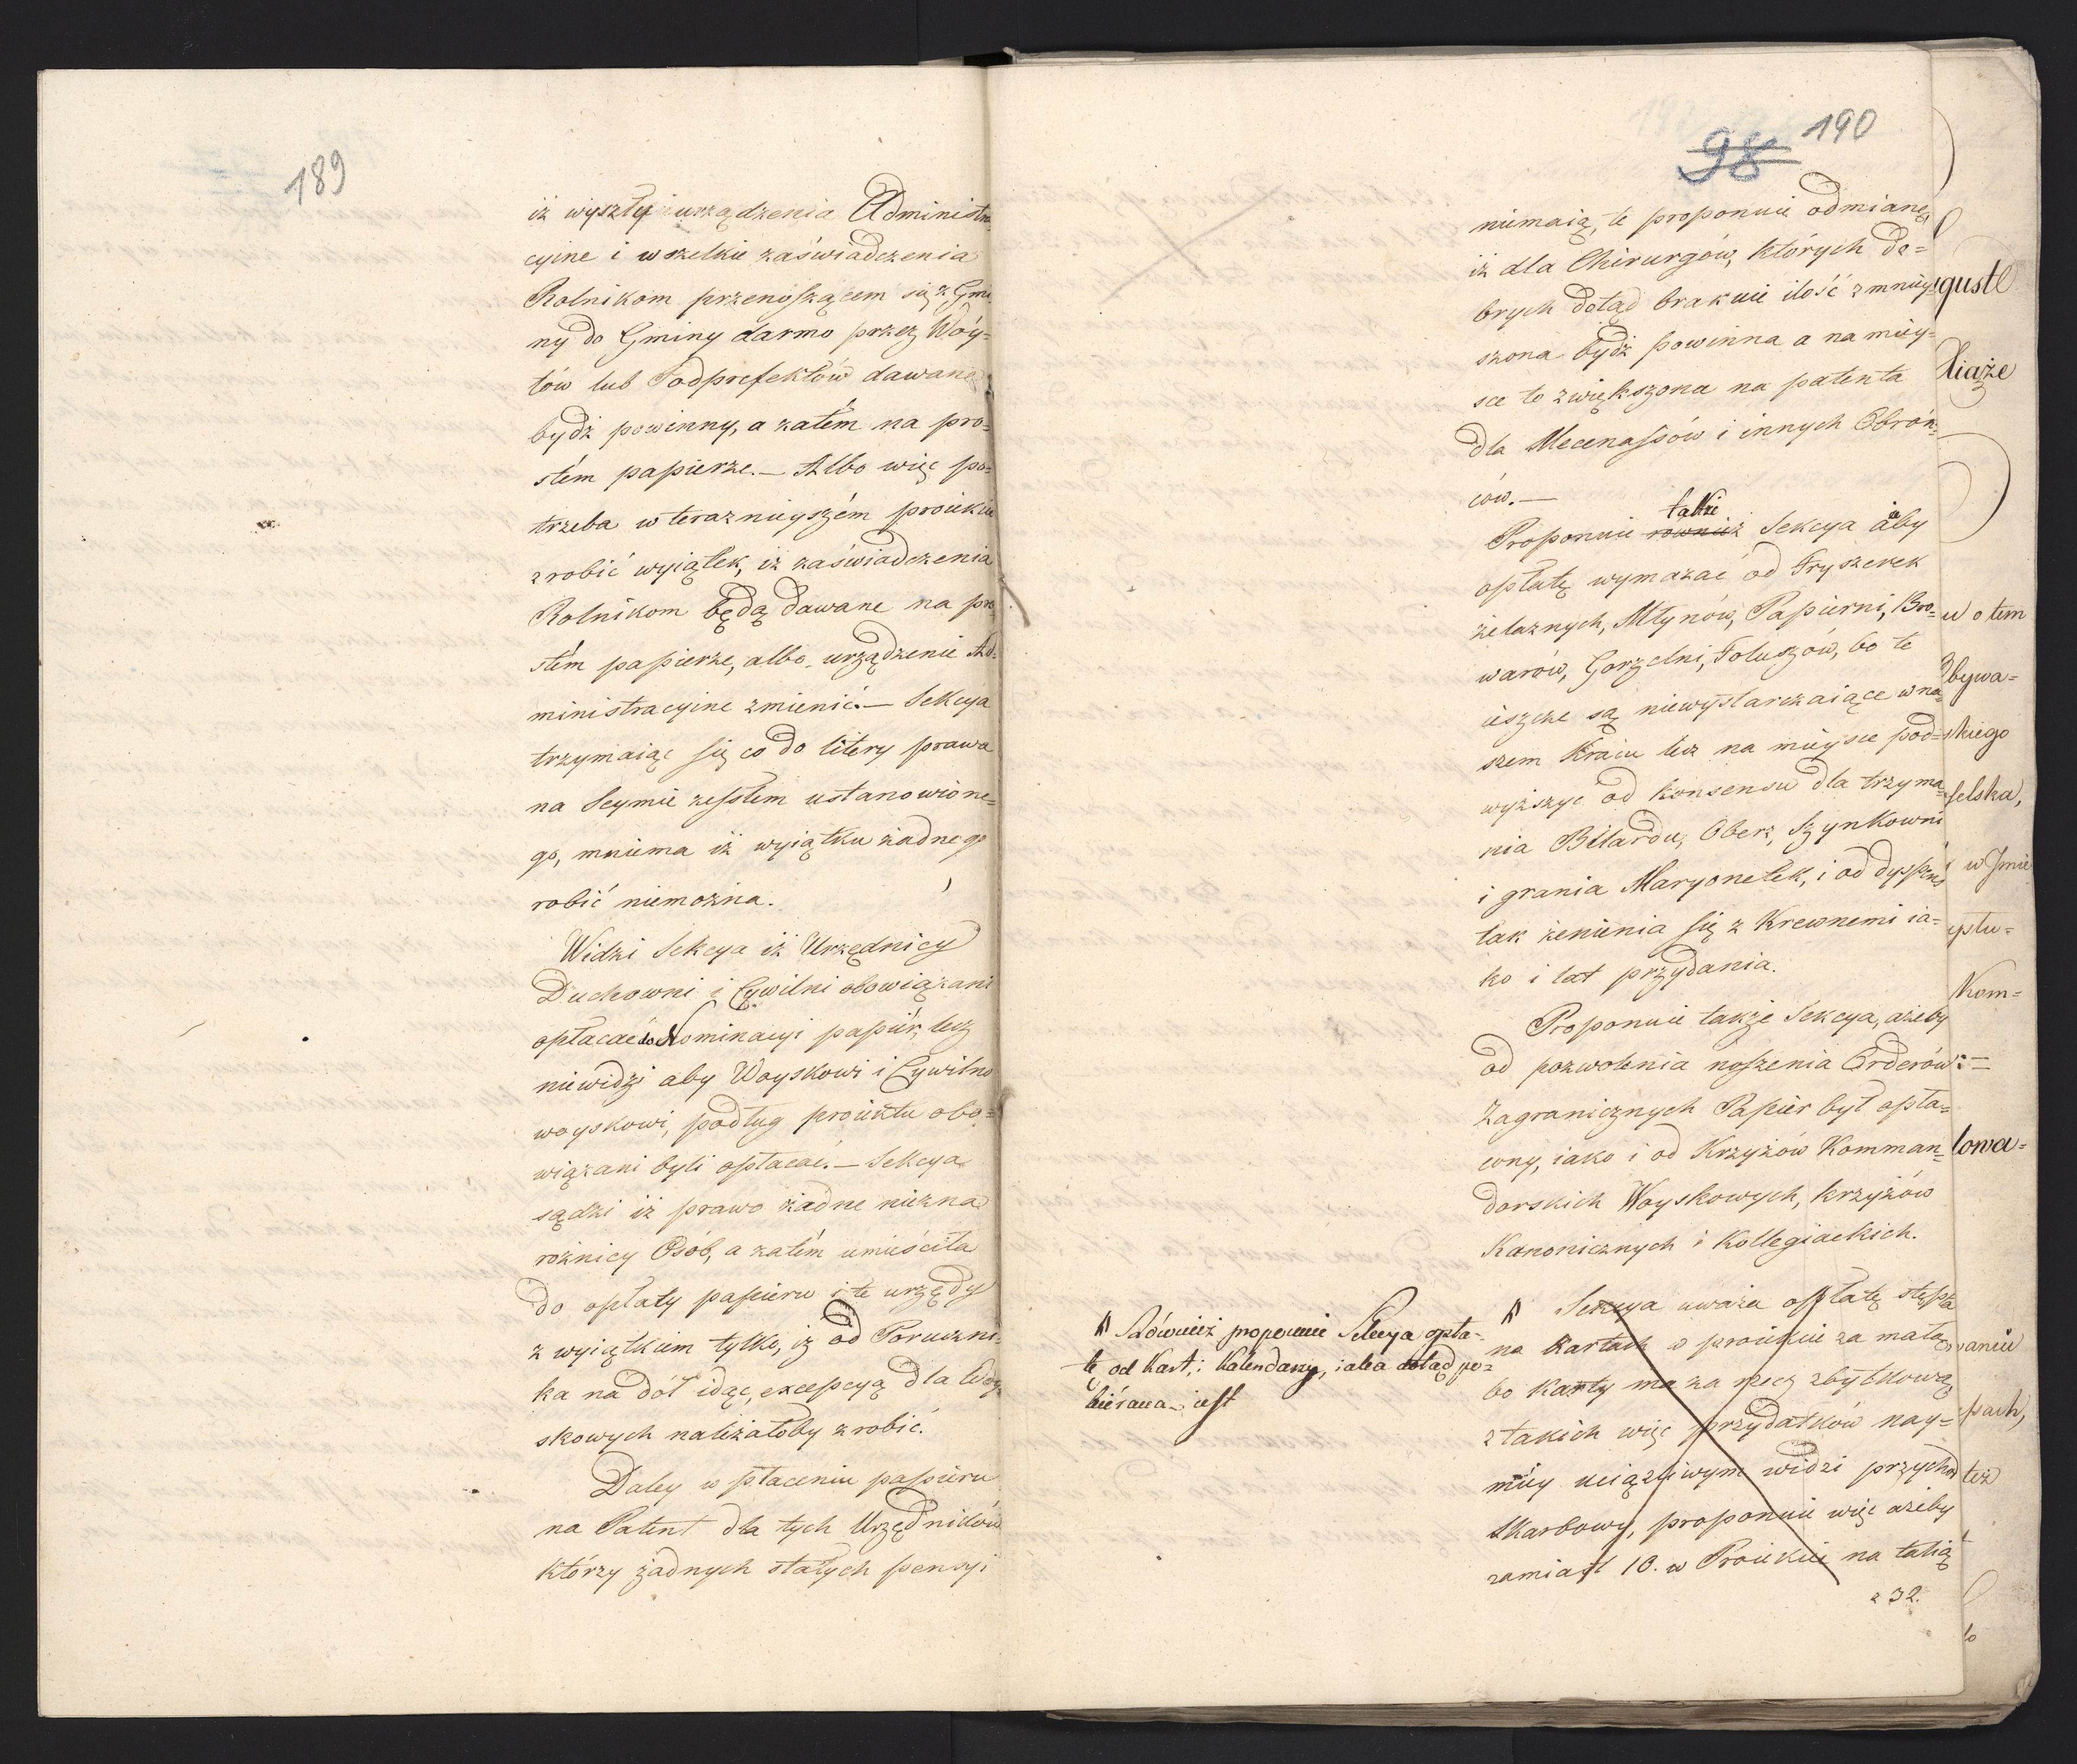 189
iż wyszły urządzenia Administra
cyine i wszelkie zaświadczenia
Rolnikom przenoszącem się z Gmi
ny do Gminy darmo przez Wóy=
tów lub Podprefektów dawane
bydź powinny, a zatém na pro=
stém papierze.— Albo więc po=
trzeba w teraznieyszém proiekcie
zrobić wyiątek, iż zaświadczenia
Rolnikom będą dawane na pro
stém papierze, albo urządzenie Ad=
ministracyine zmienić.— Sekcya
trzymaiąc się co do litery prawa
na Seymie zeszłem ustanowione=
go, mniema iż wyiątku żadnego
robić niemożna.
Widzi Sekcya iż Urzędnicy
Duchowni i Cywilni obowiązani
opłacać do Nominacyi papiér, lecz
niewidzi aby Woyskowi i Cywilno
woyskowi, podług proiektu obo=
wiązani byli opłacać.— Sekcya
sądzi iż prawo żadne niezna
rożnicy Osób, a zatém umieściła
do opłaty papieru i te urzędy
z wyiątkiem tylko, iż od Poruczni=
ka na dół idąc, excepcyą dla Woy
skowych należałoby zrobić.
Daley w płaceniu papieru
na Patent dla tych Urzędników
którzy żadnych stałych pensyi
98 190
niemaią, te proponuie odmianę,
iż dla Chirurgów, których do=
brych dotąd brakuie ilość zmniey=
szona bydź powinna a na miey=
sce to zwiększona na patenta
dla Mecenassów i innych Obroń=
ców.—
także
Proponuie również Sekcya aby
opłatę wymazać od Fryszerek
żelaznych, Młynów, Papierni, Bro=
warów, Gorzelni, Foluszów, bo te
ieszcze są niewystarczaiące w na=
szem Kraiu lecz na mieysce pod=
wyższyć od konsensu dla trzyma
nia Bilardu, Oberz, Szynkowni
i grania Maryonetek, i od dyspens
tak żenienia się z Krewnemi ia=
ko i lat przydania.
Proponuie także Sekcya, ażeby
od pozwolenia noszenia Orderów
Zagranicznych Papier był opła=
cony, iako i od Krzyżów Komman=
dorskich Woyskowych, krzyżów
Kanonicznych i Kollegiackich.
Sekcya uważa opłatę stępla
na kartach w proiekcie za małą
bo karty ma za rzecz zbytkową
z takich więc przydatków nay=
mniey uciążliwym widzi przychod
Skarbowy, proponuie więc ażeby
zamiast 10. w Proiekcie na talią
z 32.
Równieź proponuie Sekcya opła=
tę od Kart, i Kalendarzy, iaka dotąd po=
biérana iest
guste
Xiąże
w o tem
Obywa=
skiego
selska,
w Jmie
Kom=
łowa=
waniu
też